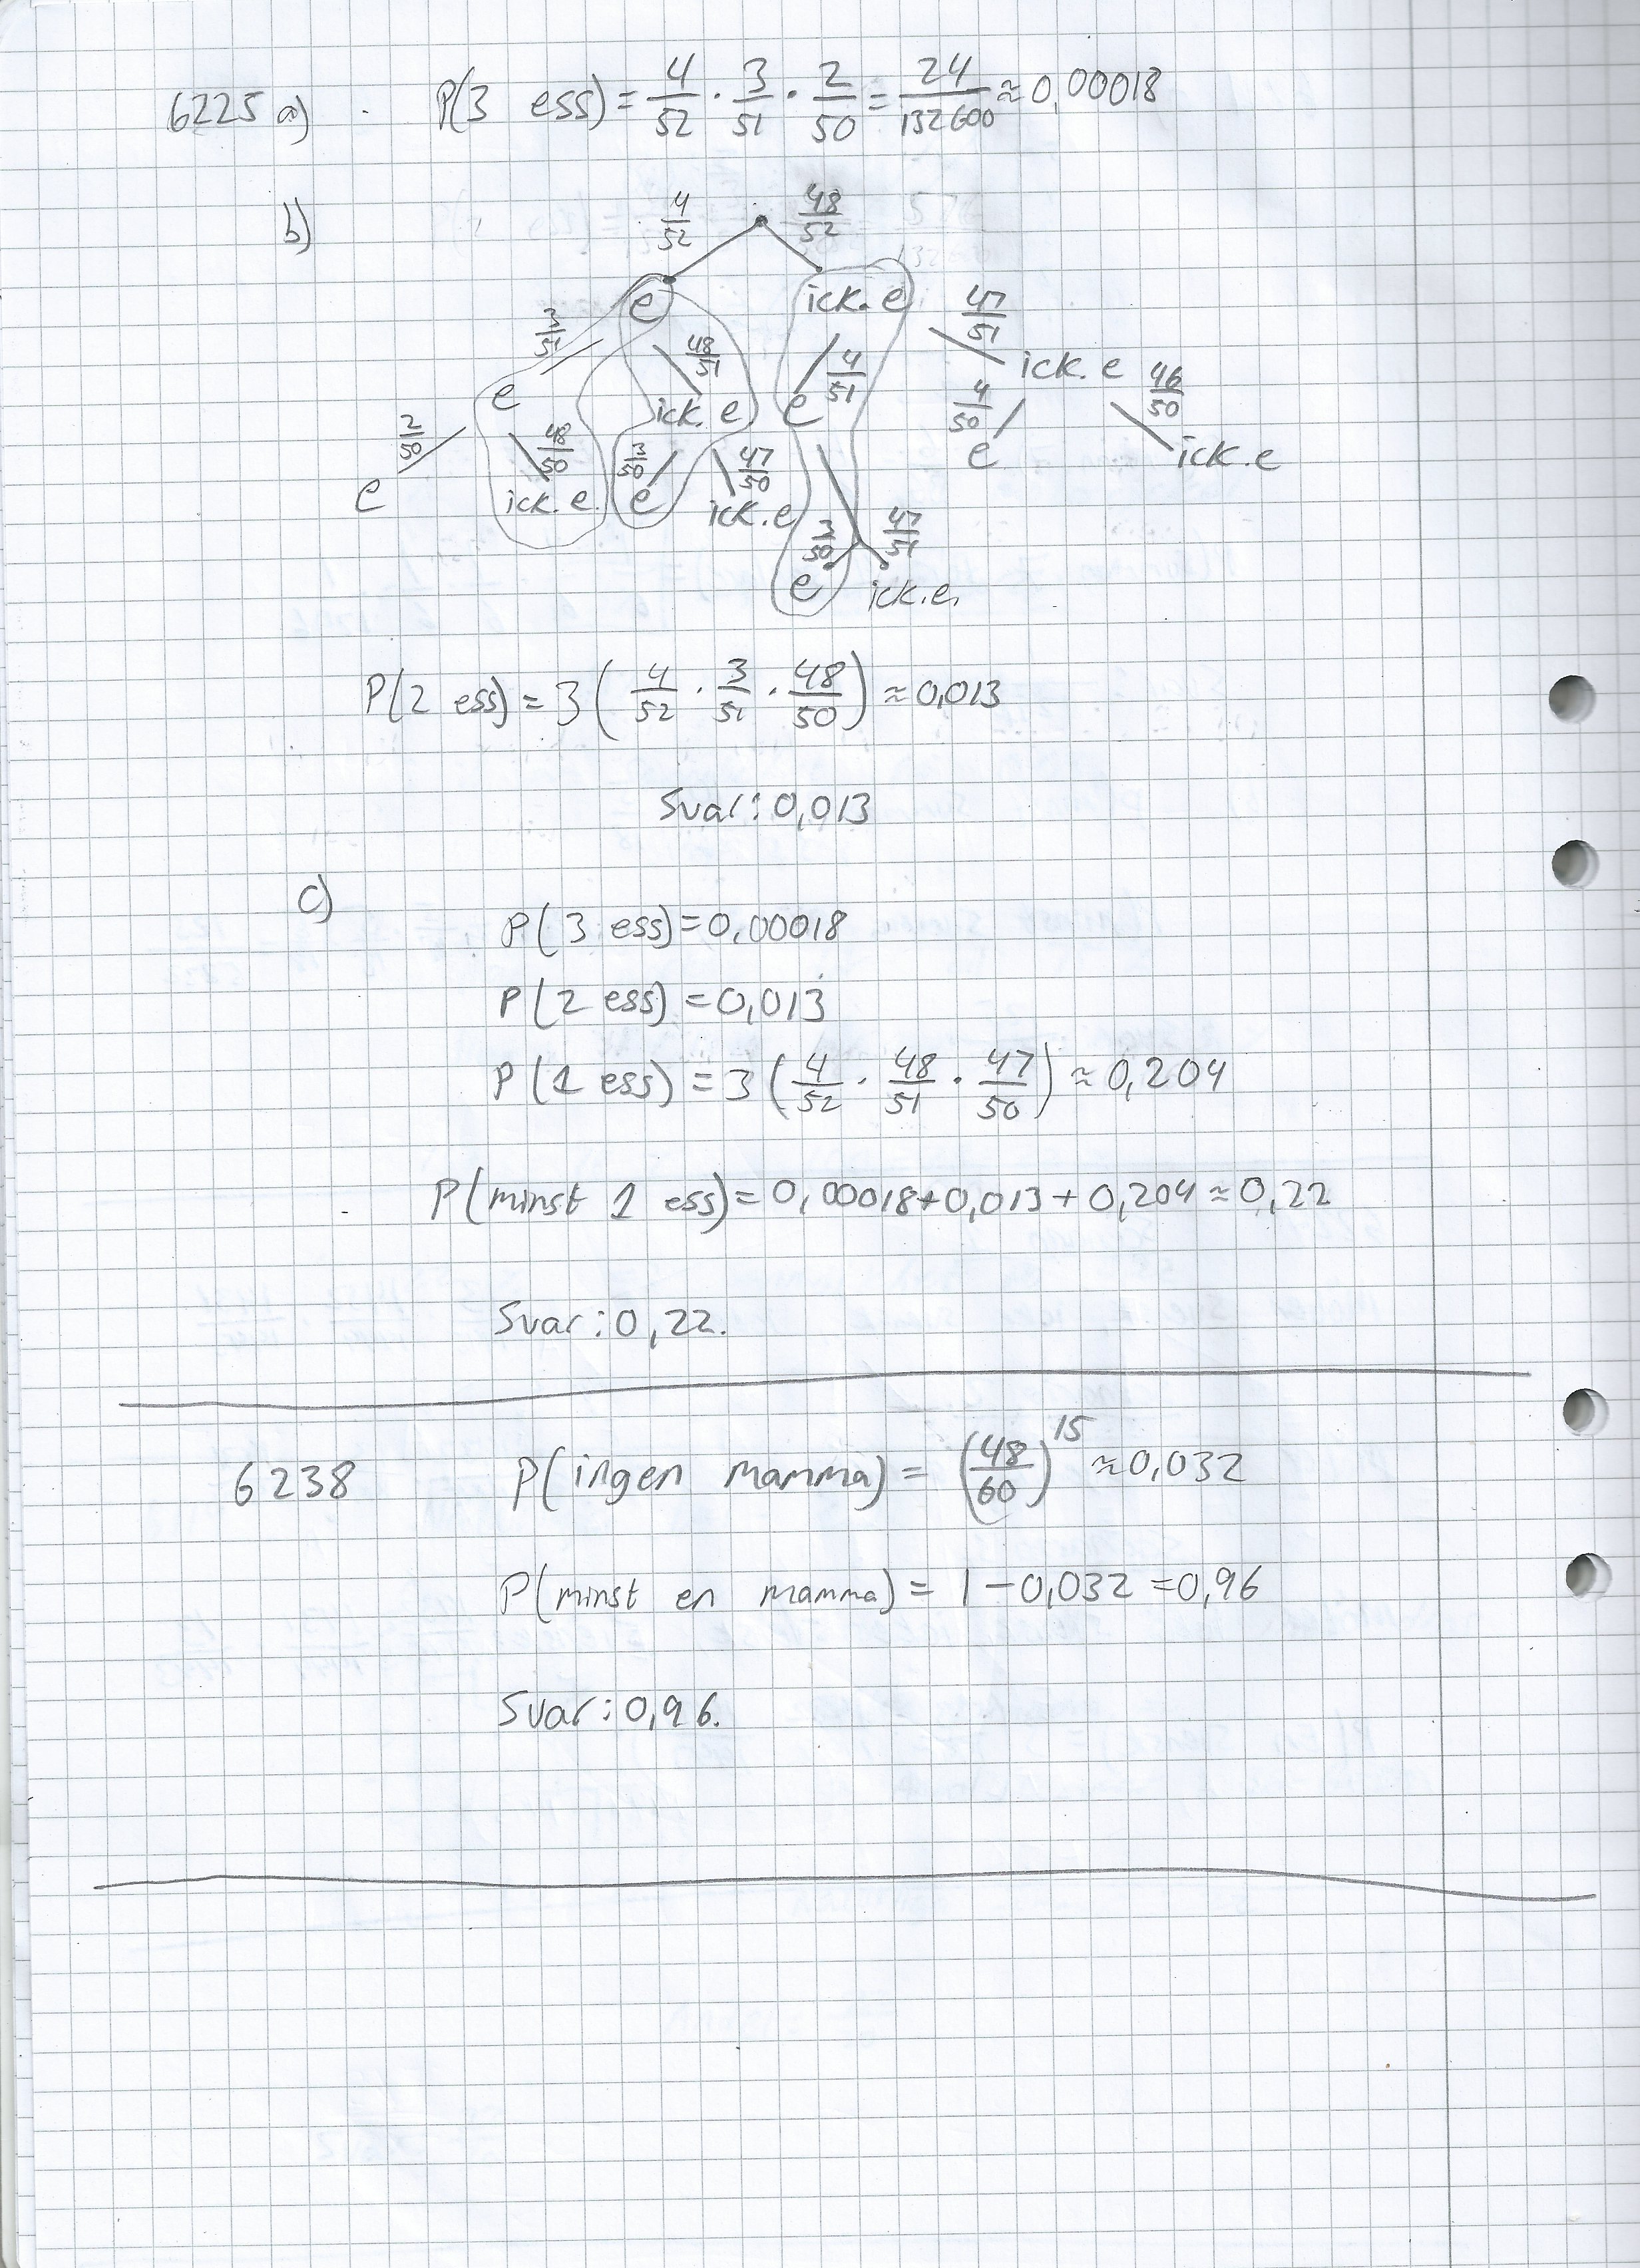 6225 a) P(3 ess) = 4/52 · 3/51 · 2/50 = 24/132600 ≈ 0,00018
b) 4/52 48/52
e ick. e 47/51
3/51 48/51 4/51 ick. e
e ick. e e 4/50 46/50
2/50 48/50 3/50 47/50 e ick.e
e ick. e. e ick.e 3/50 47/51
e ick.e.
P(2 ess) = 3 ( 4/52 · 3/51 · 48/50 ) ≈ 0,013
Svar: 0,013
c)
P(3 ess) = 0,00018
P(2 ess) = 0,013
P(1 ess) = 3 ( 4/52 · 48/51 · 47/50 ) ≈ 0,204
P(minst 1 ess) = 0,00018 + 0,013 + 0,204 ≈ 0,22
Svar: 0,22.
6238 P(ingen mamma) = (48/60)^15 ≈ 0,032
P(minst en mamma) = 1 - 0,032 = 0,96
Svar: 0,96.